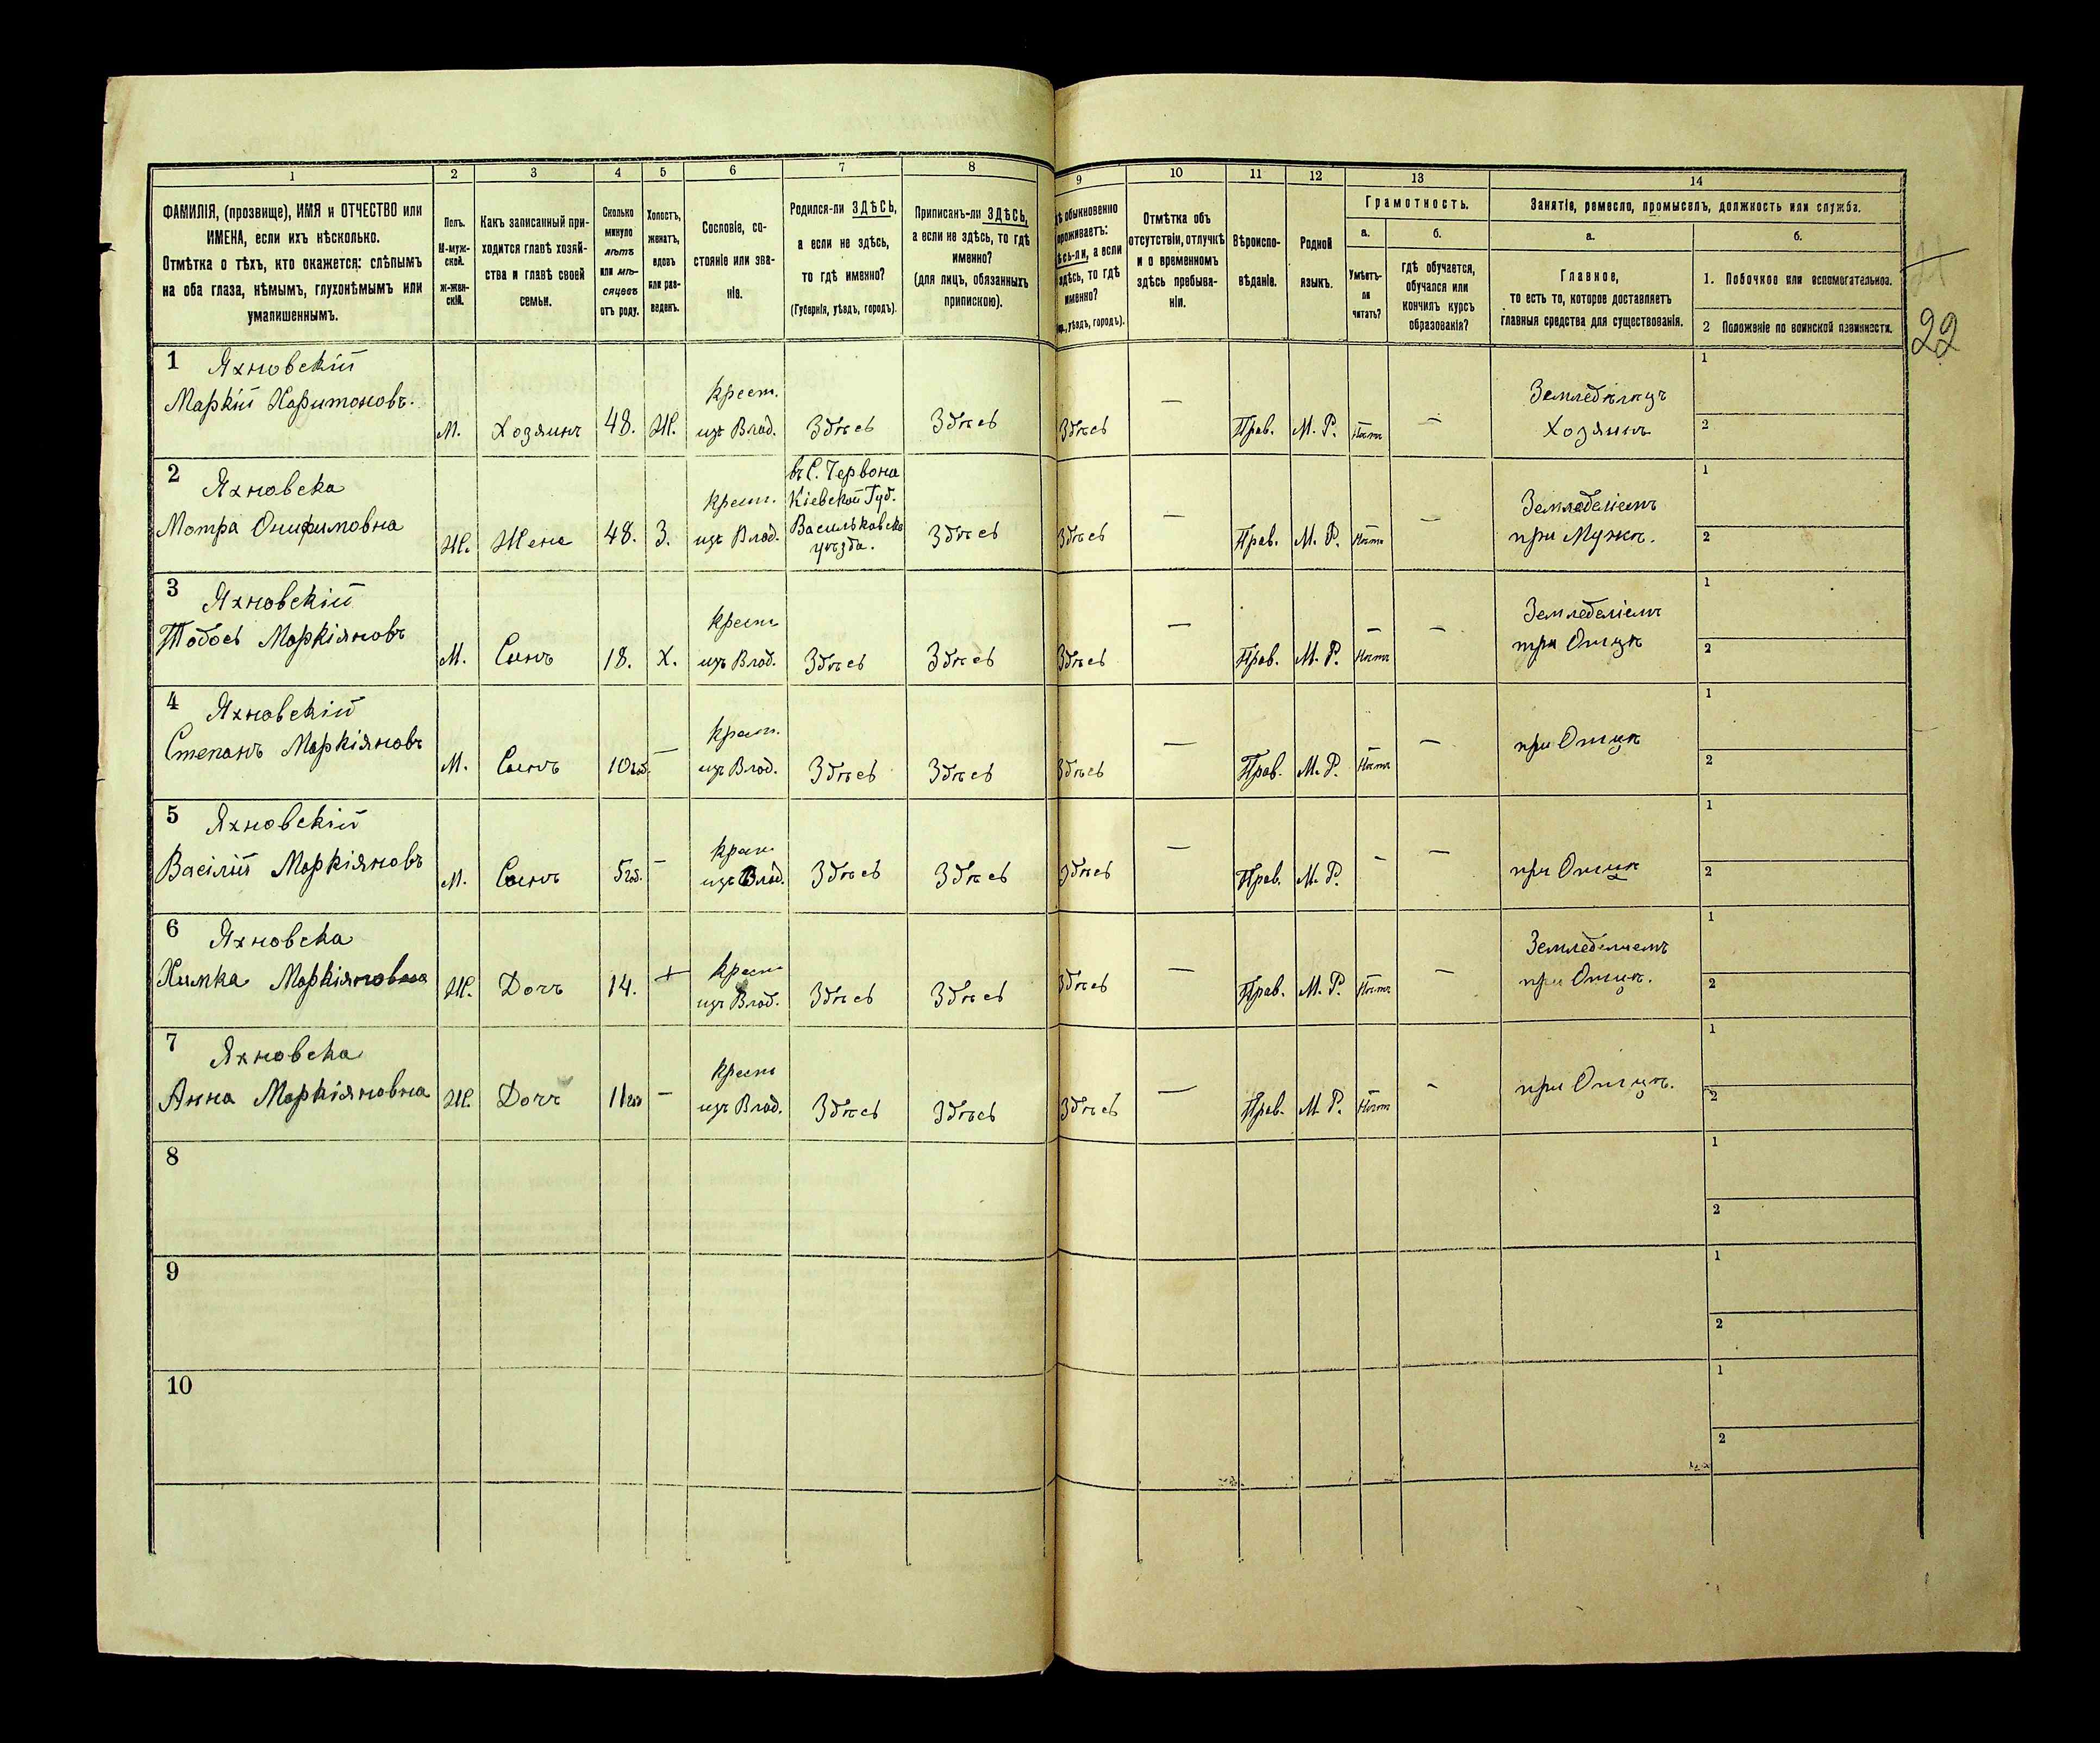 1 2 3 4 5 6 7 8 9 10 11 12 13 14
ФАМИЛІЯ, (прозвище), ИМЯ и ОТЧЕСТВО или
ИМЕНА, если ихъ нѣсколько.
Отмѣтка о тѣхъ, кто окажется: слѣпымъ
на оба глаза, нѣмымъ, глухонѣмымъ или
умалишеннымъ.
Полъ.
М-муж-
ской.
ж-жен-
скій.
Какъ записанный при-
ходится главѣ хозяй-
ства и главѣ своей
семьи.
Сколько
минуло
лѣтъ
или мѣ-
сяцевъ
отъ роду.
Холостъ,
женатъ,
вдовъ
или раз-
веденъ.
Сословіе, со-
стояніе или зва-
ніе.
Родился-ли ЗДѢСЬ,
а если не здѣсь,
то гдѣ именно?
(Губернія, уѣздъ, городъ).
Приписанъ-ли ЗДѢСЬ,
а если не здѣсь, то гдѣ
именно?
(для лицъ, обязанныхъ
припискою).
обыкновенно
проживаетъ:
а если
здѣсь, то гдѣ
именно?
уѣздъ, городъ).
Отмѣтка объ
отсутствіи, отлучкѣ
и о временномъ
здѣсь пребыва-
ніи.
Вѣроиспо-
вѣданіе.
Родной
языкъ.
Грамотность.
а.
Умѣетъ-
ли
читать?
б.
гдѣ обучается,
обучался или
кончилъ курсъ
образованія?
Занятіе, ремесло, промыселъ, должность или служба.
а.
Главное,
то есть то, которое доставляетъ
главныя средства для существованія.
б.
1. Побочное или вспомогательное.
2 Положеніе по воинской повинности.
22
1 Яхновскій
Маркій Харитоновъ.
М. Хозяинъ 48. Ж.
крест.
изъ Влад.
Здѣсь Здѣсь Здѣсь — Прав. М. Р. Нѣтъ —
Земледѣлецъ
Хозяинъ
1
2
2 Яхновска
Мотра Онифимовна
Ж. Жена 48. З.
крест.
изъ Влад.
въ С. Червона
Кіевской Губ.
Васильковска
уѣзда.
Здѣсь Здѣсь — Прав. М. Р. Нѣтъ —
Земледеліемъ
при Мужѣ.
1
2
3 Яхновскій
Тодось Маркіяновъ
М. Сынъ 18. Х.
крест
изъ Влад.
Здѣсь Здѣсь Здѣсь — Прав. М. Р. Нѣтъ —
Земледеліемъ
при Отцѣ
1
2
4 Яхновскій
Степанъ Маркіяновъ
М. Сынъ 10 год. —
крест.
изъ Влад.
Здѣсь Здѣсь Здѣсь — Прав. М. Р. Нѣтъ —
при Отцѣ
1
2
5 Яхновскій
Васілій Маркіяновъ
М. Сынъ 5 год. —
крест
изъ Влад.
Здѣсь Здѣсь Здѣсь — Прав. М. Р. - —
при Отцѣ
1
2
6 Яхновска
Химка Маркіяновна
Ж. Дочъ 14. +
крест
изъ Влад.
Здѣсь Здѣсь Здѣсь — Прав. М. Р. Нѣтъ —
Земледелиемъ
при Отцѣ.
1
2
7 Яхновска
Анна Маркіяновна
Ж. Дочъ 11 год —
крест
изъ Влад.
Здѣсь Здѣсь Здѣсь — Прав. М. Р. Нѣт -
при Отцѣ.
1
2
8
1
2
9
1
2
10
1
2